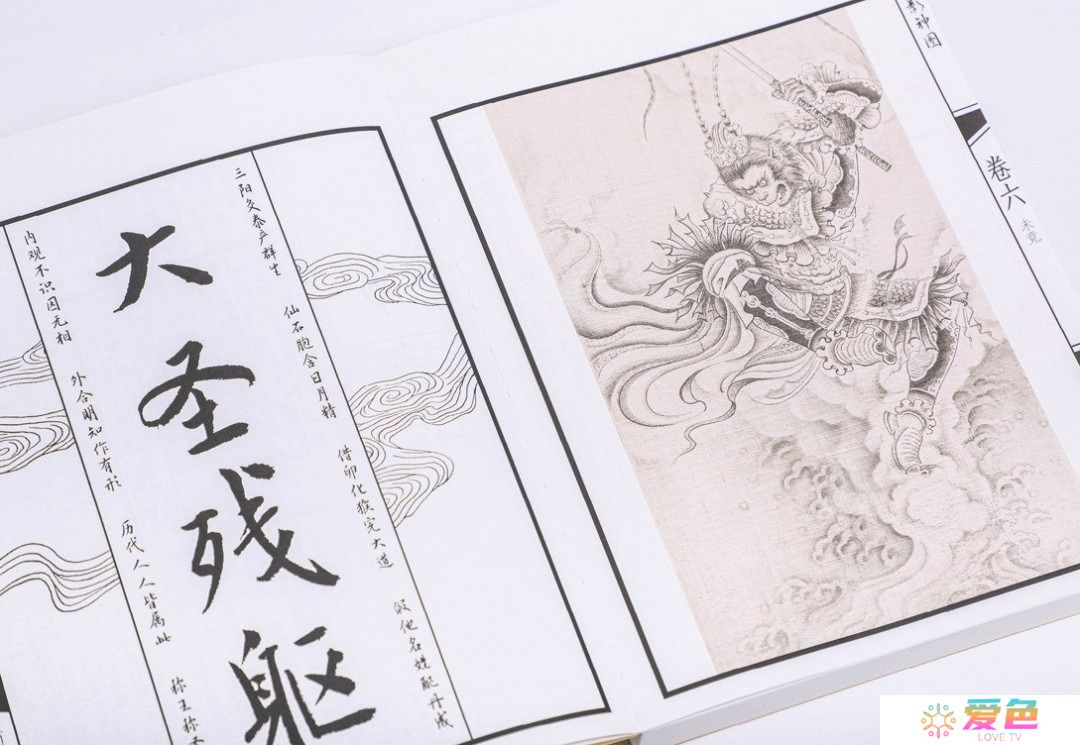 影神图
卷六
未竟
三阳交泰产群生
仙石胞含日月精
借卵化猴完大道
假他名姓配丹成
大圣残躯
内观不识因无相
外合明知作有形
历代人人皆属此
称王称
爱色
LOVE TV